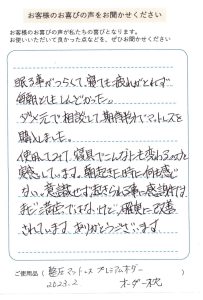 お客様のお喜びの声をお聞かせください
お客様のお喜びの声が私たちの喜びとなります。
お使いいただいて良かった点などを、ぜひお聞かせください
眠る事がつらくて、寝ても疲れがとれず
毎朝とてもしんどかった。
ダメ元で相談して、期待半分でマットレスを
購入しました。
使用してみて、寝具でこんなにも変わるのかと
実感しています。朝起きた時に何も感じ
ない、意識せず起きられる事に感謝です
まだ満点ではないけど、確実に改善
されています。ありがとうございます。
ご使用品（ 整圧マットレス プレミアムオーダー ）
2023.2 オーダー枕